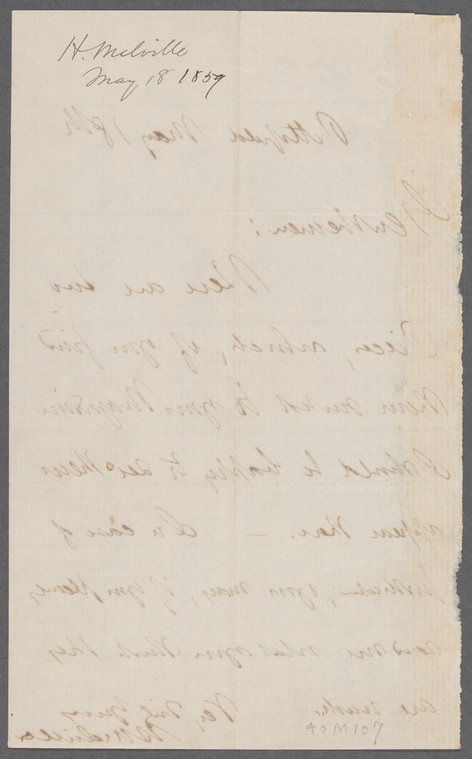 H. Melville
May 18 1859
Pittsfield May 18th
Gentlemen:
Here are two
Pieces, which, if you find
them suited to your Magazine
I should be happy to see them
appear there. — In case of
publication, you may, if you please,
send me what you think they
are worth. Very truly yours
H Melville
40M107